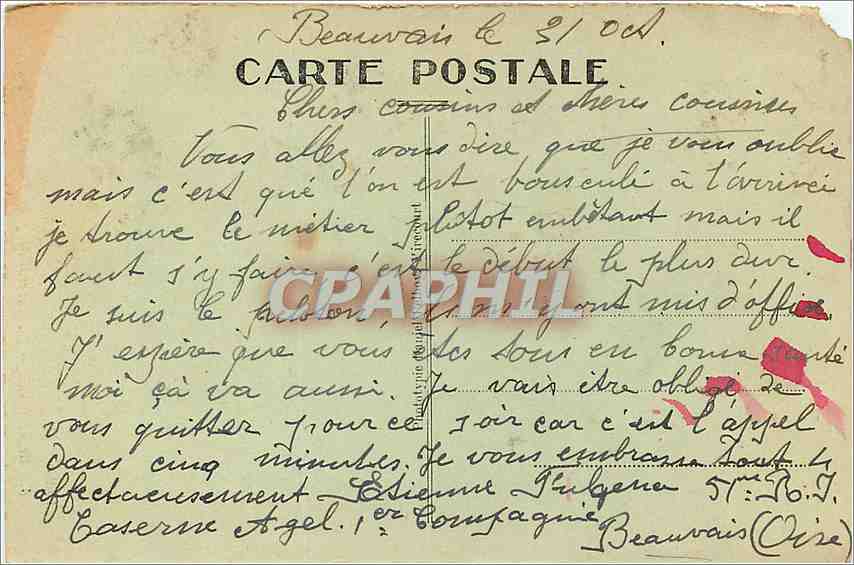 Beauvais le 31 Oct.
CARTE POSTALE
Chers cousins et chères cousines
Vous allez vous dire que je vous oublie
mais c'est qué l'on est bousculé à l'arrivée
je trouve le métier plutot embêtant mais il
faut s'y faire, c'est le début le plus dur.
Je suis le peloton, ils m'y ont mis d'office.
J'espère que vous êtes tous en bonne santé
moi çà va aussi. Je vais être obligé de
vous quitter pour ce soir car c'est l'appel
dans cinq minutes. Je vous embrasse tous
affectueusement Etienne 51me R.I.
Caserne Agel. 1er Compagnie
Beauvais (Oise)
CPAPHIL
Phototypie Daniel Delboy, Mirecourt